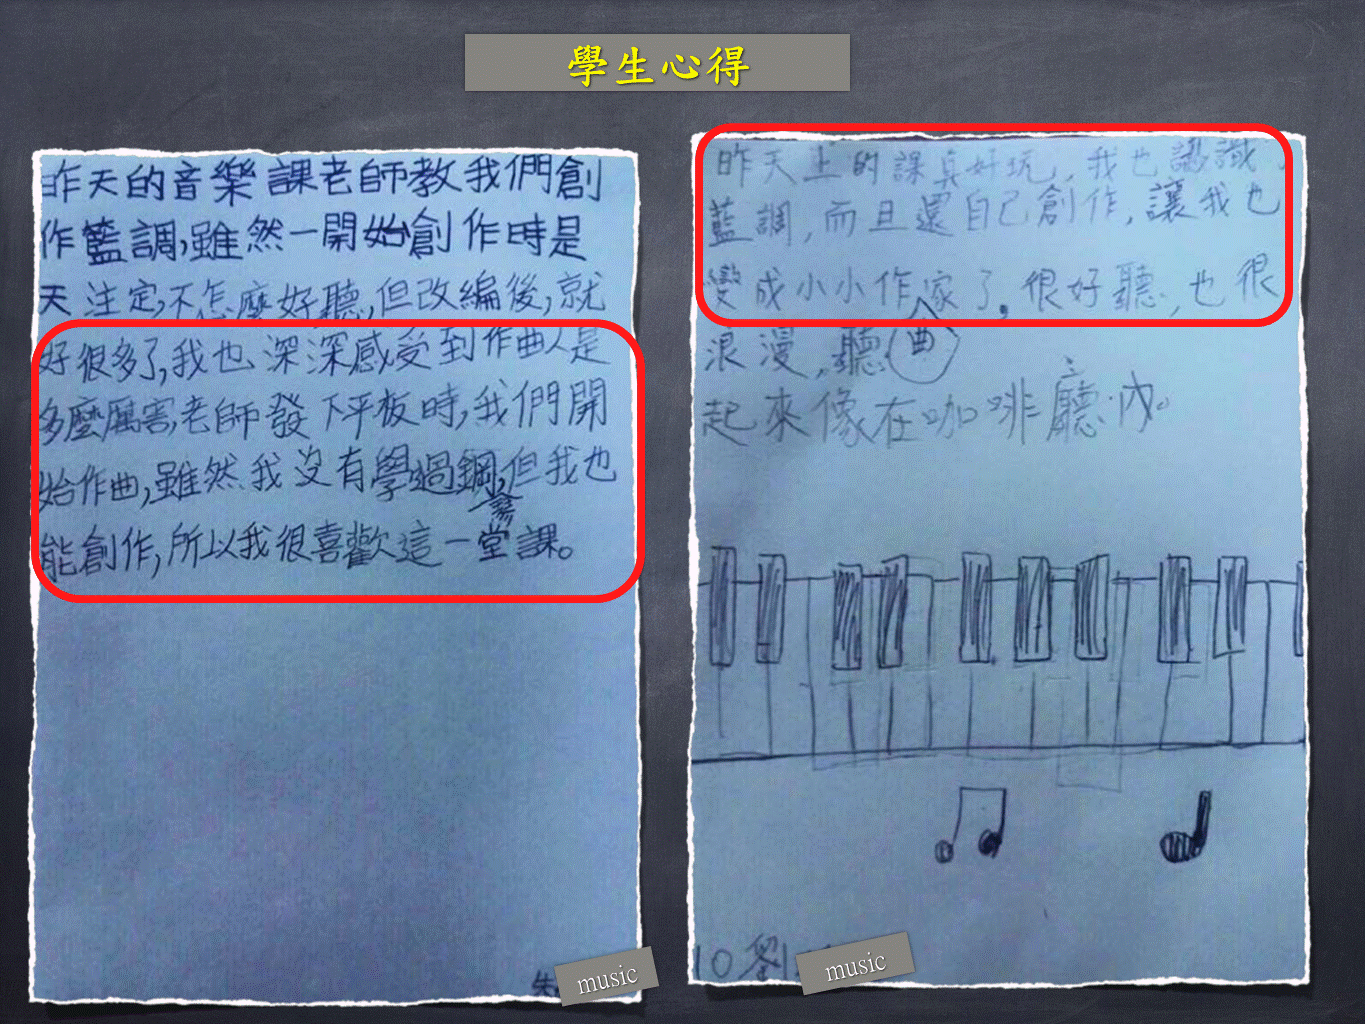 學生心得
昨天的音樂課老師教我們創
作籃調,雖然一開始創作時是
天注定,不怎麼好聽,但改編後,就
好很多了,我也深深感受到作曲人是
多麼厲害,老師發下平板時,我們開
始作曲,雖然我沒有學過鋼琴,但我也
能創作,所以我很喜歡這一堂課。
朱
music
昨天上的課真好玩,我也認識
藍調,而且還自己創作,讓我也
變成小小作曲家了。很好聽,也很
浪漫,聽
起來像在咖啡廳內。
10 劉
music